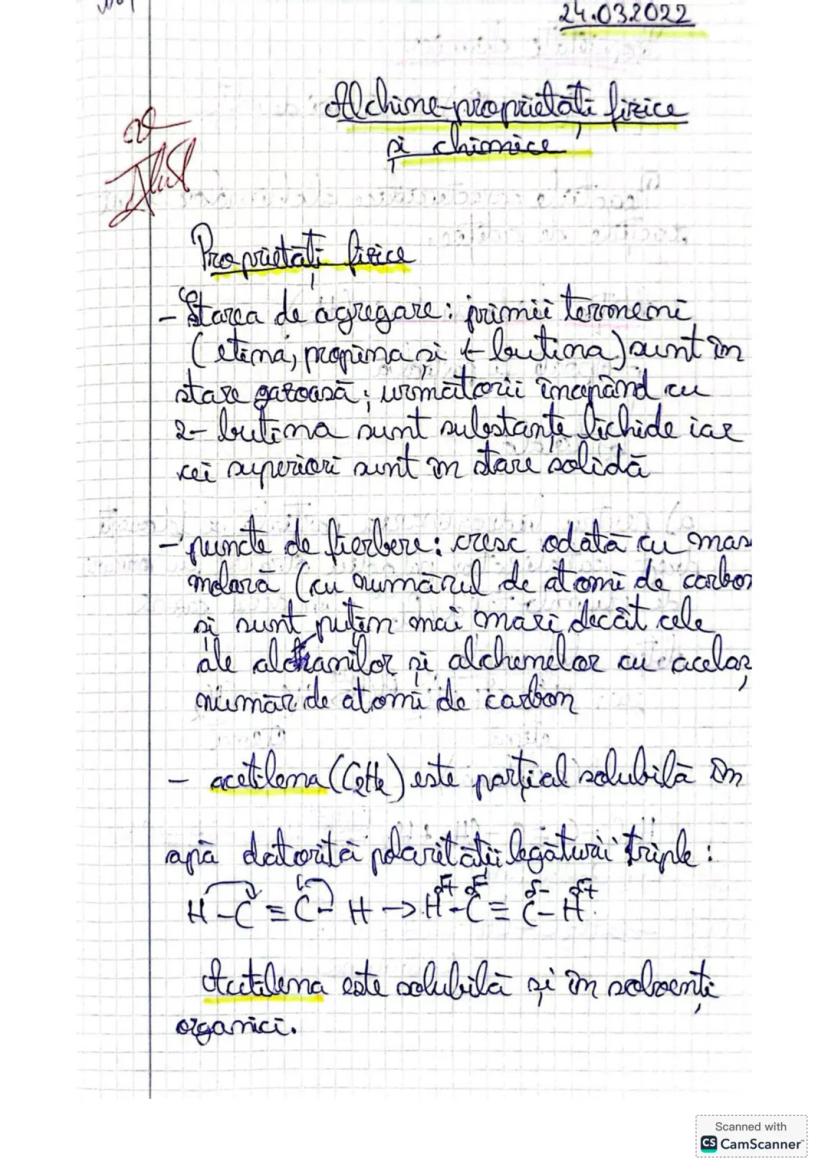 24.03.2022
Alchine-proprietăți fizice
și chimice
Proprietăți fizice
- Starea de agregare: primii termeni
(etina, propina și 1-butina) sunt în
stare gazoasă; următorii începând cu
2-butina sunt substanțe lichide iar
cei superiori sunt în stare solidă
- puncte de fierbere: cresc odată cu mas
molară (cu numărul de atomi de carbon
și sunt puțin mai mari decât cele
ale alcanilor și alchenelor cu același
număr de atomi de carbon
- acetilena (C2H2) este parțial solubilă în
apă datorită polarității legăturii triple:
H-C≡C-H → H^δ+-C^δ-≡C^δ--H^δ+
Acetilena este solubilă și în solvenți
organici.
Scanned with
CS CamScanner